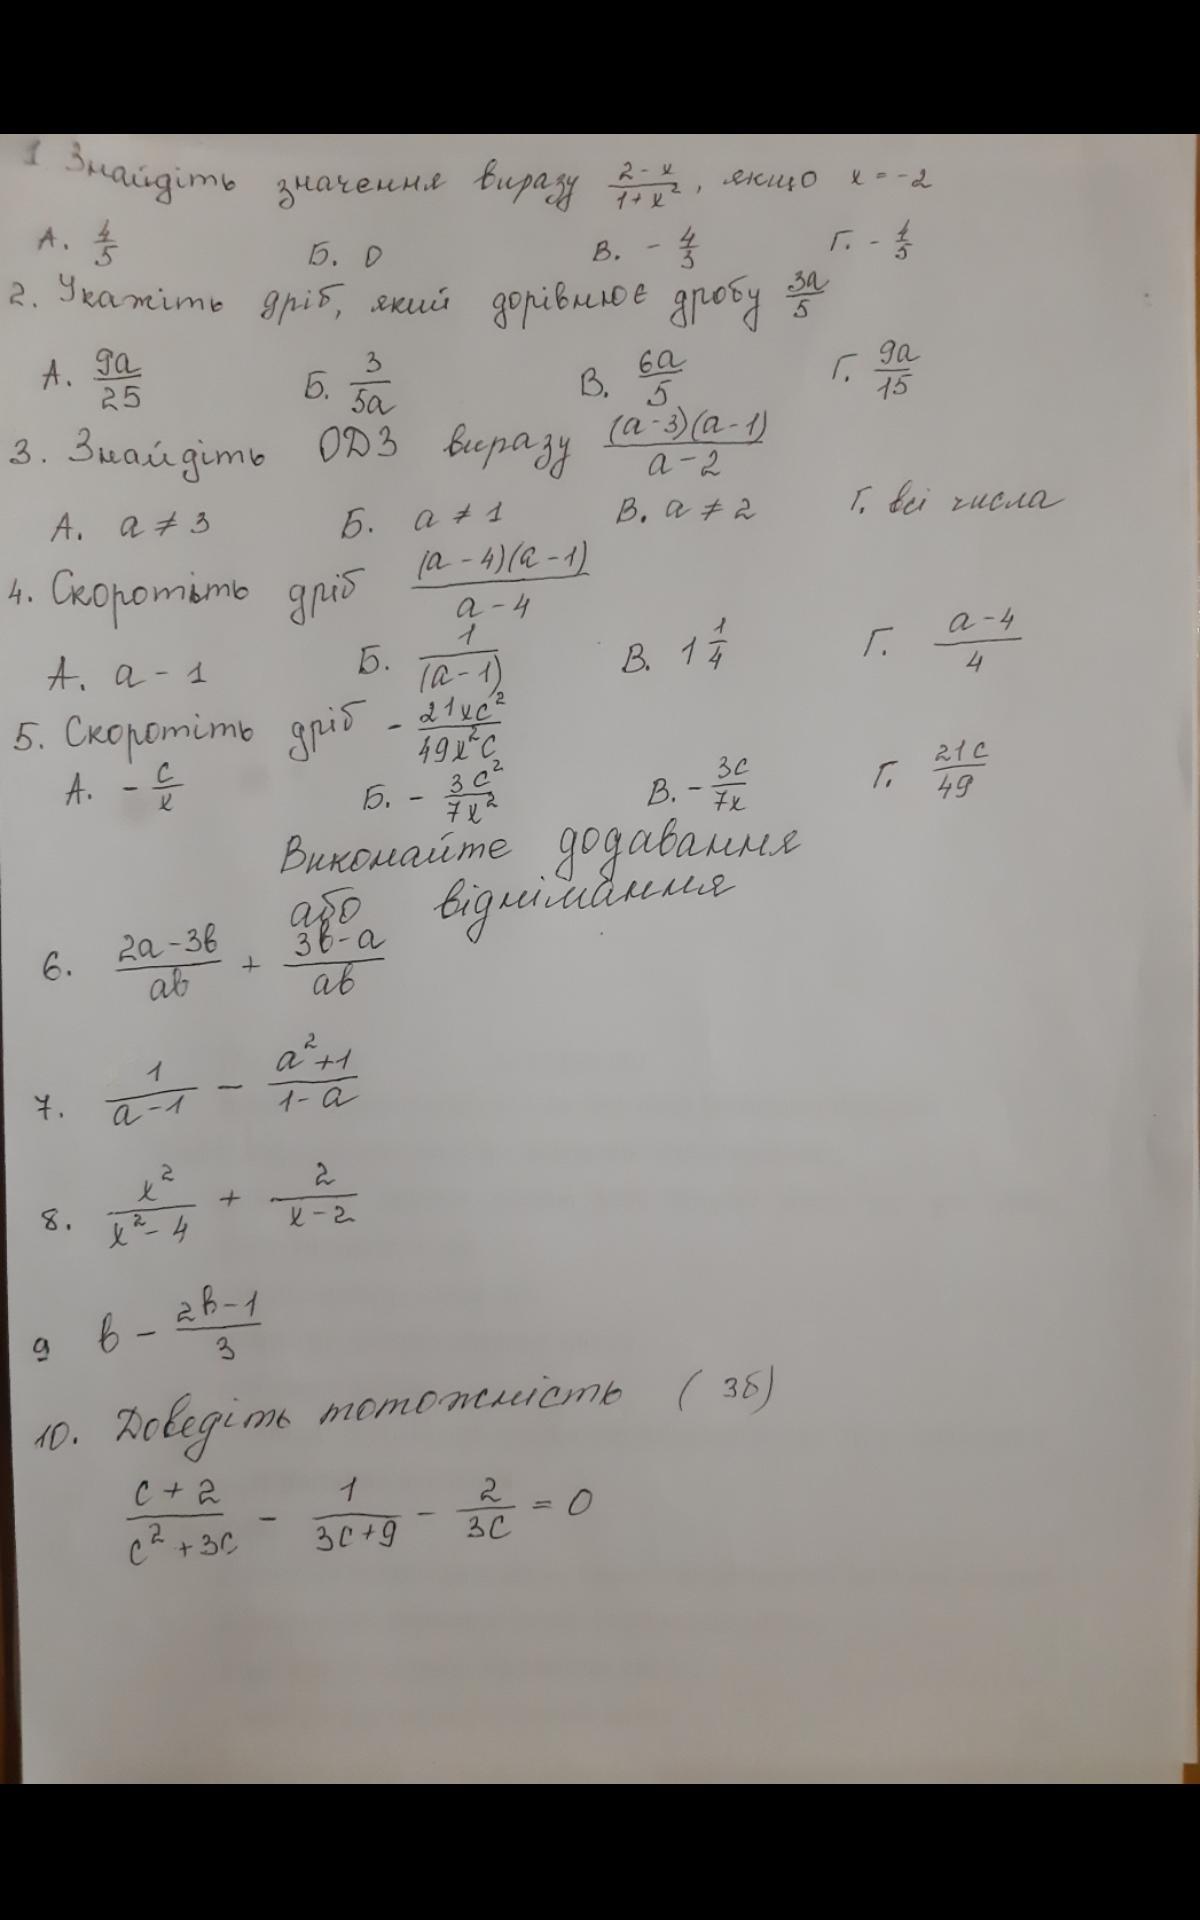 1 Знайдіть значення виразу (2-x)/(1+x²), якщо x = -2
А. 4/5 Б. 0 В. - 4/3 Г. - 4/5
2. Укажіть дріб, який дорівнює дробу 3a/5
А. 9a/25 Б. 3/5a В. 6a/5 Г. 9a/15
3. Знайдіть ОДЗ виразу (a-3)(a-1)/(a-2)
А. a ≠ 3 Б. a ≠ 1 В. a ≠ 2 Г. всі числа
4. Скоротіть дріб (a-4)(a-1)/(a-4)
А. a - 1 Б. 1/(a-1) В. 1 1/4 Г. (a-4)/4
5. Скоротіть дріб - 21xc²/49x²c
А. - c/x Б. - 3c²/7x² В. - 3c/7x Г. 21c/49
Виконайте додавання
або віднімання
6. (2a-3b)/ab + (3b-a)/ab
7. 1/(a-1) - (a²+1)/(1-a)
8. x²/(x²-4) + 2/(x-2)
9 b - (2b-1)/3
10. Доведіть тотожність (3б)
(c+2)/(c²+3c) - 1/(3c+9) - 2/3c = 0